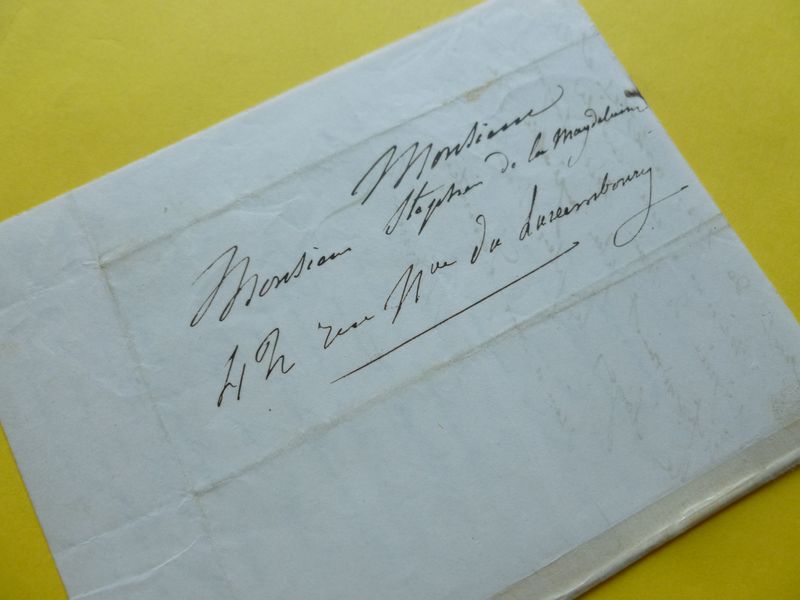 Monsieur
Monsieur Stephen de la Magdelaine
42 rue Nve du Luxembourg